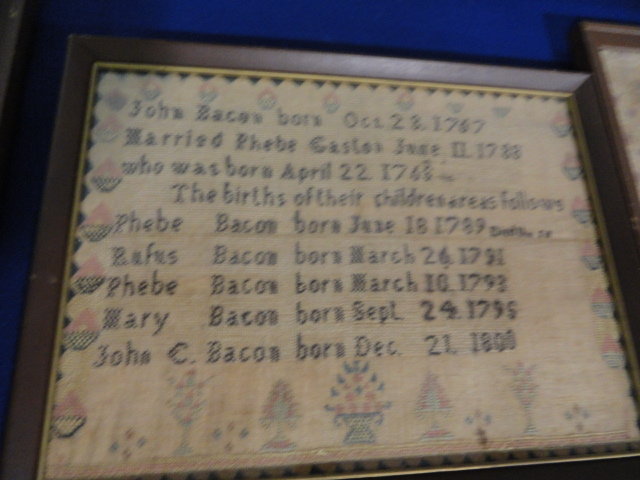 John Bacon born Oct. 28. 1767
Married Phebe Gaston June 11. 1788
who was born April 22. 1768
The births of their children are as follows
Phebe Bacon born June 18 1789
Rufus Bacon born March 26 1791
Phebe Bacon born March 10. 1793
Mary Bacon born Sept. 24. 1795
John C. Bacon born Dec. 21. 1800